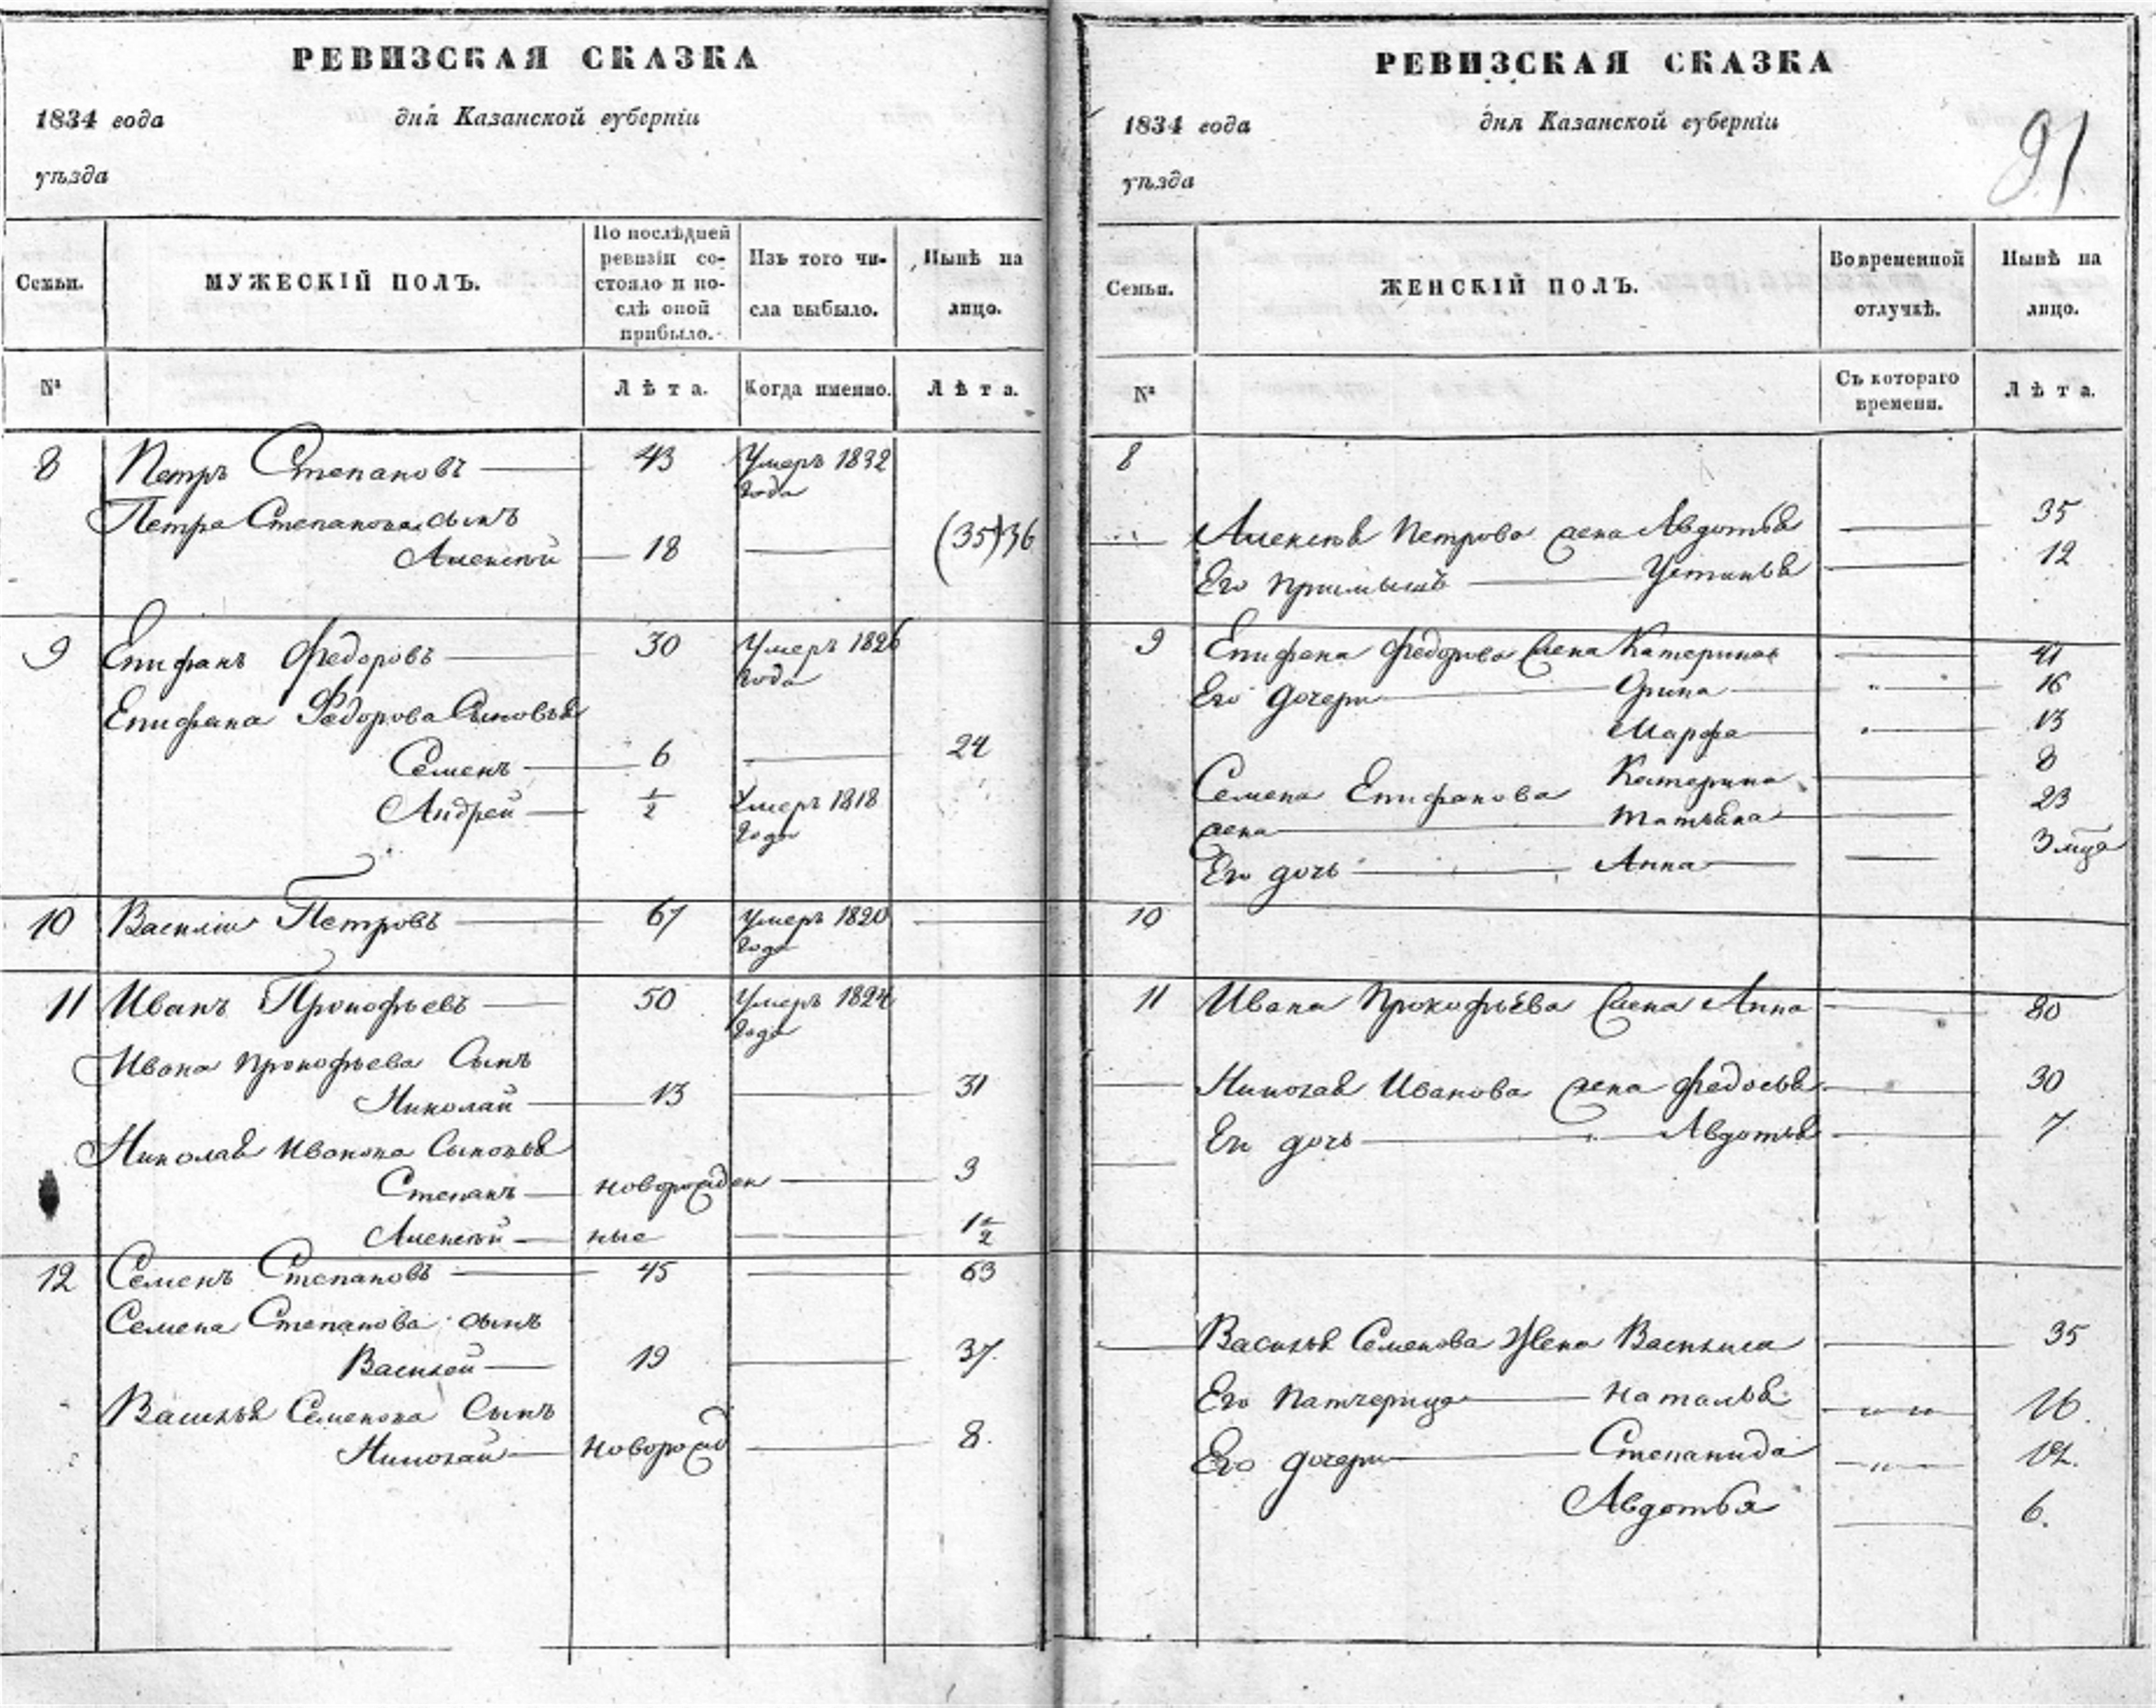 РЕВИЗСКАЯ СКАЗКА
1834 года дня Казанской губерніи
уѣзда
Семьи.
МУЖЕСКІЙ ПОЛЪ.
По послѣдней
ревизіи со-
стояло и по-
слѣ оной
прибыло.
Изъ того чи-
сла выбыло.
Нынѣ на
лицо.
№ Лѣта. Когда именно. Лѣта.
8 Петръ Степановъ 43 Умеръ 1832
года
Петра Степанова сынъ
Алексѣй 18 (35) 36
9 Епифанъ Федоровъ 30 Умеръ 1826
года
Епифана Федорова Сыновья
Семенъ 6 24
Андрей ½ Умеръ 1818
года
10 Василій Петровъ 67 Умеръ 1820
года
11 Иванъ Прокофьевъ 50 Умеръ 1824
года
Ивана Прокофьева Сынъ
Николай 13 31
Николая Иванова Сыновья
Степанъ новорожден 3
Алексѣй ные 1½
12 Семенъ Степановъ 45 63
Семена Степанова сынъ
Василей 19 37.
Василья Семенова Сынъ
Николай новорожд 8.
РЕВИЗСКАЯ СКАЗКА
1834 года дня Казанской губерніи
уѣзда
91
Семьи.
ЖЕНСКІЙ ПОЛЪ.
Во временной
отлучкѣ.
Нынѣ на
лицо.
№ Съ котораго
времени.
Лѣта.
8
Алексѣя Петрова жена Авдотья 35
Его Устинья 12
9 Епифана Федорова жена Катерина 41
Его дочери Орина 16
Марфа 13
Катерина 8
Семена Епифанова
жена Татьяна 23
Его дочь Анна 3 мца
10
11 Ивана Прокофьева жена Анна 80
Николая Иванова жена Федосья 30
Ея дочь Авдотья 7
Василья Семенова Жена Василиса 35
Его Патчерица Наталья 16.
Его дочери Степанида 12.
Авдотья 6.